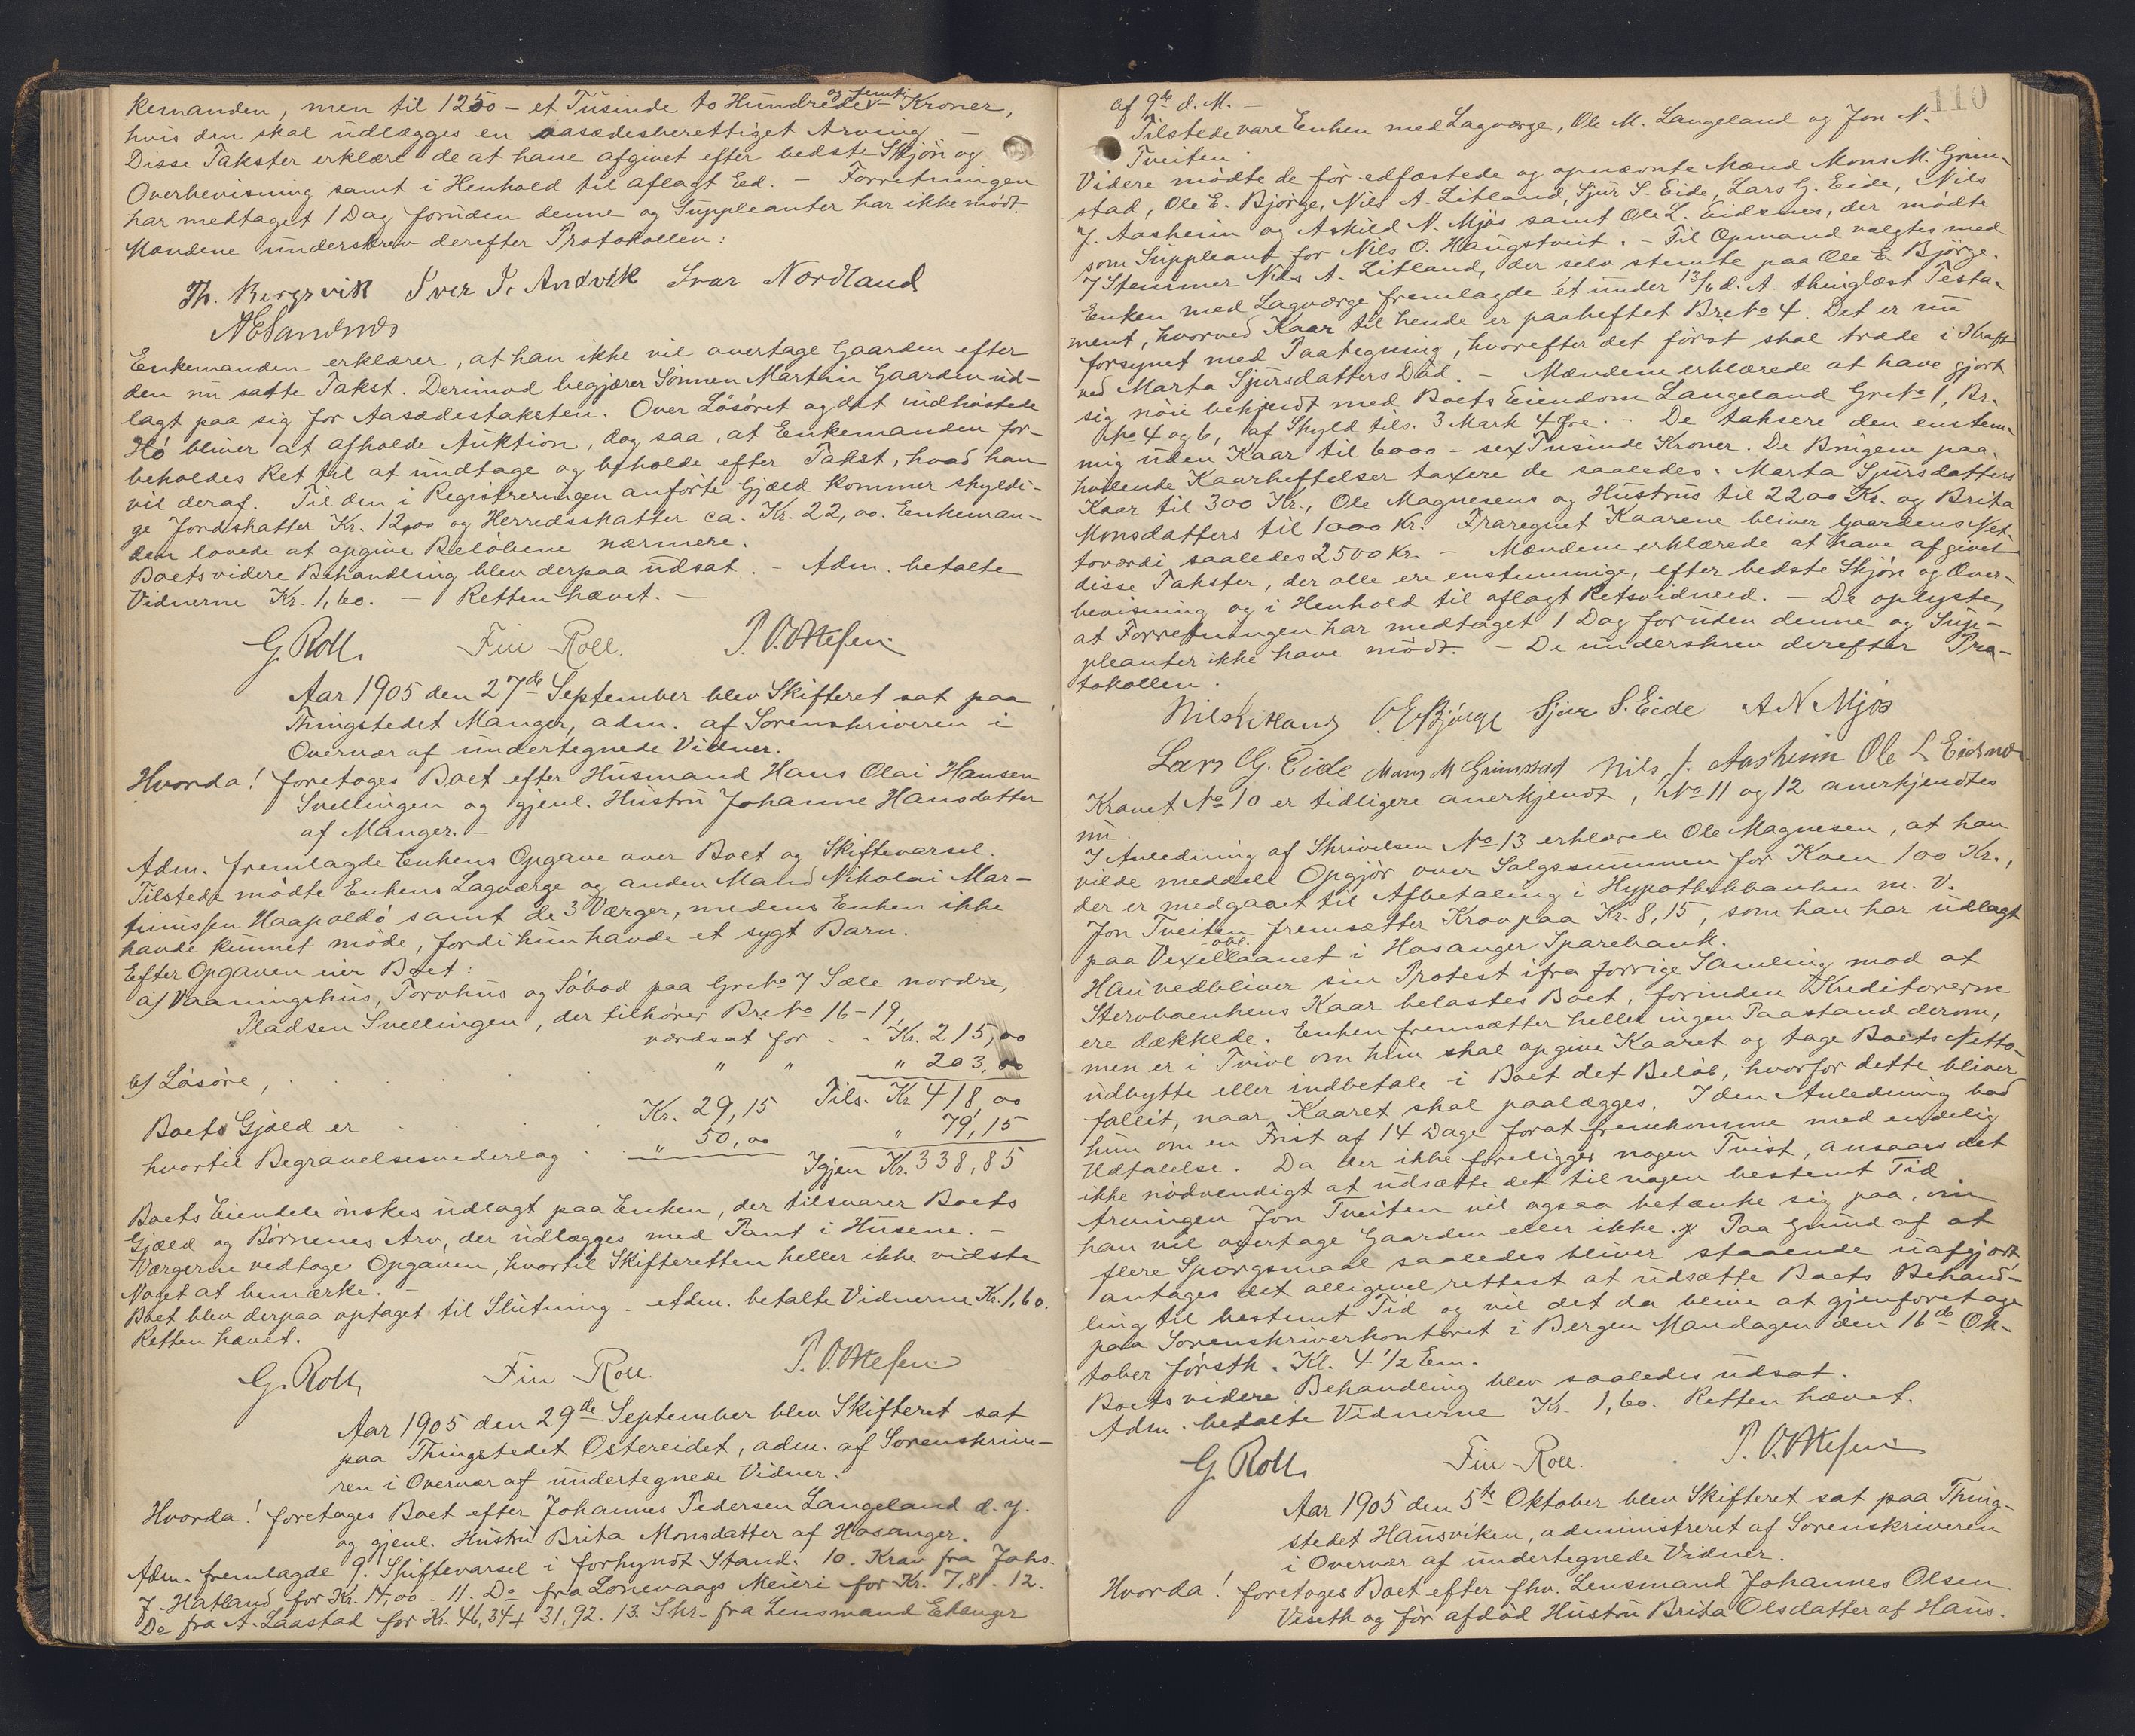 kemanden, men til 1250 - et Tusinde to Hundrede og femti - Kroner,
hvis den skal udlægges en aasædesberettiget Arving. -
Disse Takster erklære de at have afgivet efter bedste Skjøn og
Overbevisning samt i Henhold til aflagt Eed. - Forretningen
har medtaget 1 Dag foruden denne og Suppleanter har ikke mödt.
Mændene underskrev derefter Protokollen:
Th. Bergsvik Iver I. Andvik Ivar Nordland
Enkemanden erklærer, at han ikke vil overtage Gaarden efter
den nu satte Takst. Derimod begjærer Sönnen Martin Gaarden ud-
lagt paa sig for Aasædestaksten. Over Lösöret og det indhöstede
Hö bliver at afholde Auktion, dog saa, at Enkemanden for-
beholdes Ret til at undtage og beholde efter Takst, hvad han
vil deraf. Til den i Registreringen anförte Gjæld kommer skyldi-
ge Jordskatter Kr. 12,00 og Herredsskatter ca. Kr. 22,00. Enkeman-
den lovede at opgive Belöbene nærmere.
Boets videre Behandling blev derpaa udsat. - Adm. betalte
Vidnerne Kr. 1,60. - Retten hævet. -
G Roll. Fin Roll. P. Ottesen
Aar 1905 den 27de September blev Skifteret sat paa
Thingstedet Manger, adm. af Sorenskriveren i
Overvær af undertegnede Vidner.
Hvorda! foretages Boet efter Husmand Hans Olai Hansen
Svellingen og gjenl. Hustru Johanne Hansdatter
af Manger. -
Adm. fremlagde Enkens Opgave over Boet og Skiftevarsel.
Tilstede mödte Enkens Lagværge og anden Mand Nikolai Mar-
tinussen Haapoldö samt de 3 Værger, medens Enken ikke
havde kunnet möde, fordi hun havde et sygt Barn.
Efter Opgaven eier Boet:
a/ Vaaningshus, Torvhus og Söbod paa Grno 7 Sæle nordre,
Pladsen Svellingen, der tilhörer Brno 16-19,
værdsat for . . Kr. 215,00
b/ Lösöre, . . . . " " " 203,00
Tils. Kr 418,00
Boets Gjæld er . . . Kr. 29,15
hvortil Begravelsesvederlag . " 50,00 " 79,15
Igjen Kr. 338,85
Boets Eiendele önskes udlagt paa Enken, der tilsvarer Boets
Gjæld og Börnenes Arv, der udlægges med Pant i Husene. -
Værgerne vedtoge Opgaven, hvortil Skifteretten heller ikke vidste
Noget at bemærke. -
Boet blev derpaa optaget til Slutning. Adm. betalte Vidnerne Kr. 1,60.
Retten hævet.
G. Roll. Fin Roll. P. Ottesen
Aar 1905 den 29de September blev Skifteret sat
paa Thingstedet Ostereidet, adm. af Sorenskrive-
ren i Overvær af undertegnede Vidner.
Hvorda! foretages Boet efter Johannes Pedersen Langeland d. y.
og gjenl. Hustru Brita Monsdatter af Hosanger.
Adm. fremlagde 9. Skiftevarsel i forkyndt Stand. 10. Krav fra Johs.
J. Hatland for Kr. 14,00. 11. Do fra Lonevaags Meieri for Kr. 7,81. 12.
Do fra A. Laastad for Kr. 46,34 + 31,92. 13. Skr. fra Lensmand Ekanger
110
af 9de d. M. -
Tilstede vare Enken med Lagværge, Ole M. Langeland og Jon N.
Tveiten.
Videre mödte de för edfæstede og opnævnte Mænd Mons M. Grim-
stad, Ole E. Björge, Nils A. Litland, Sjur S. Eide, Lars G. Eide, Nils
J. Aasheim og Askild N. Mjös samt Ole L. Eidsnes, der mödte
som Suppleant for Nils O. Haugstveit. - Til Opmand valgtes med
7 Stemmer Nils A. Litland, der selv stemte paa Ole E. Björge.
Enken med Lagværge fremlagde et under 13/6 d. A. thinglæst Testa-
ment, hvorved Kaar til hende er paaheftet Brno 4. Det er nu
forsynet med Paategning, hvorefter det först skal træde i Kraft
ved Marta Sjursdatters Död. - Mændene erklærede at have gjort
sig nöie bekjendt med Boets Eiendom Langeland Grno 1, Br.
No 4 og 6, af Skyld tils. 3 Mark 4 Öre. - De taksere den enstem-
mig uden Kaar til 6000 - sex Tusinde Kroner. De Brugene paa-
hvilende Kaarheftelser taxere de saaledes: Marta Sjursdatters
Kaar til 300 Kr., Ole Magnesens og Hustrus til 2200 Kr. og Brita
Monsdatters til 1000 Kr. Fraregnet Kaarene bliver Gaardens Net-
toværdi saaledes 2500 Kr. - Mændene erklærede at have afgivet
disse Takster, der alle ere enstemmige, efter bedste Skjön og Over-
bevisning og i Henhold til aflagt Retsvidneed. - De oplyste,
at Forretningen har medtaget 1 Dag foruden denne og Sup-
pleanter ikke have mödt. - De underskrev derefter Pro-
tokollen.
Nils Litland O. E. Björge Sjur S. Eide A N Mjös
Lars G. Eide Mons M Grimstad Nils J. Aasheim Ole L Eidsnes
Kravet No 10 er tidligere anerkjendt, No 11 og 12 anerkjendtes
nu.
I Anledning af Skrivelsen No 13 erklærede Ole Magnesen, at han
vilde meddele Opgjör over Salgssummen for Koen 100 Kr.,
der er medgaaet til Afbetaling i Hypothekbanken m. V.
Jon Tveiten fremsætter Krav paa Kr. 8,15, som han har udlagt
paa Vexelobl.laanet i Hosanger Sparebank.
Han vedbliver sin Protest ifra forrige Samling mod at
Stervboenkens Kaar belastes Boet, forinden Kreditorerne
ere dækkede. Enken fremsætter heller ingen Paastand derom,
men er i Tvivl om hun skal opgive Kaaret og tage Boets Netto-
udbytte eller indbetale i Boet det Belöb, hvorfor dette bliver
fallit, naar Kaaret skal paalægges. I den Anledning bad
hun om en Frist af 14 Dage forat fremkomme med endelig
Udtalelse. Da der ikke foreligger nogen Tvist, ansaaes det
ikke nödvendigt at udsætte det til nogen bestemt Tid
Arvingen Jon Tveiten vil ogsaa betænke sig paa, om
han vil overtage Gaarden eller ikke. Paa Grund af at
flere Spörgsmaal saaledes bliver staaende uafgjort,
antages det alligevel rettest at udsætte Boets Behand-
ling til bestemt Tid og vil det da blive at gjenforetage
paa Sorenskriverkontoret i Bergen Mandagen den 16de Ok-
tober förstk. Kl. 4 1/2 Em.
Boets videre Behandling blev saaledes udsat.
Adm. betalte Vidnerne Kr. 1,60. Retten hævet.
G Roll. Fin Roll. P. Ottesen
Aar 1905 den 5te Oktober blev Skifteret sat paa Thing-
stedet Hausviken, administreret af Sorenskriveren
i Overvær af undertegnede Vidner.
Hvorda! foretages Boet efter fhv. Lensmand Johannes Olsen
Viseth og för afdöd Hustru Brita Olsdatter af Haus.